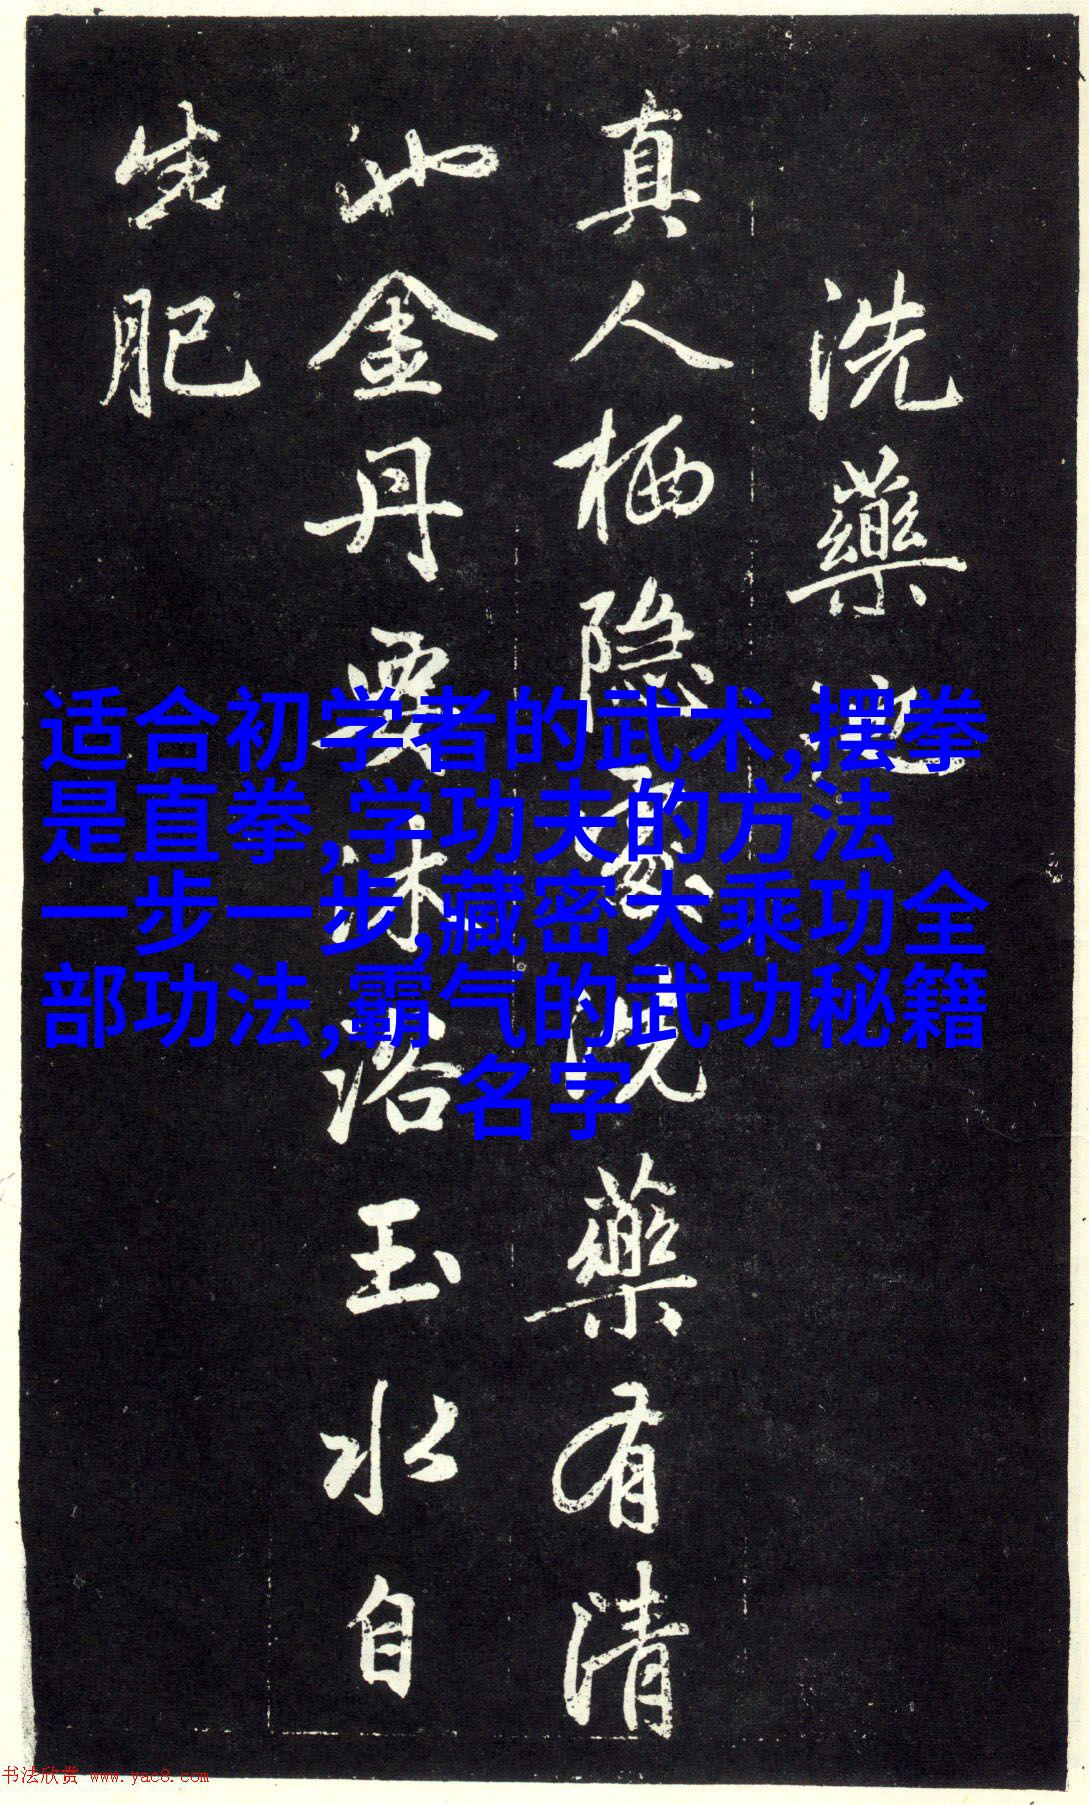 洗藥池
真人栖隐處洗藥有清
沘金丹要沐浴玉水自
生肥
适合初学者的武术,摆拳
是直拳,学功夫的方法
一步一步,藏密大乘功全
部功法,霸气的武功秘籍
名字
书法欣赏 www.yac8.com